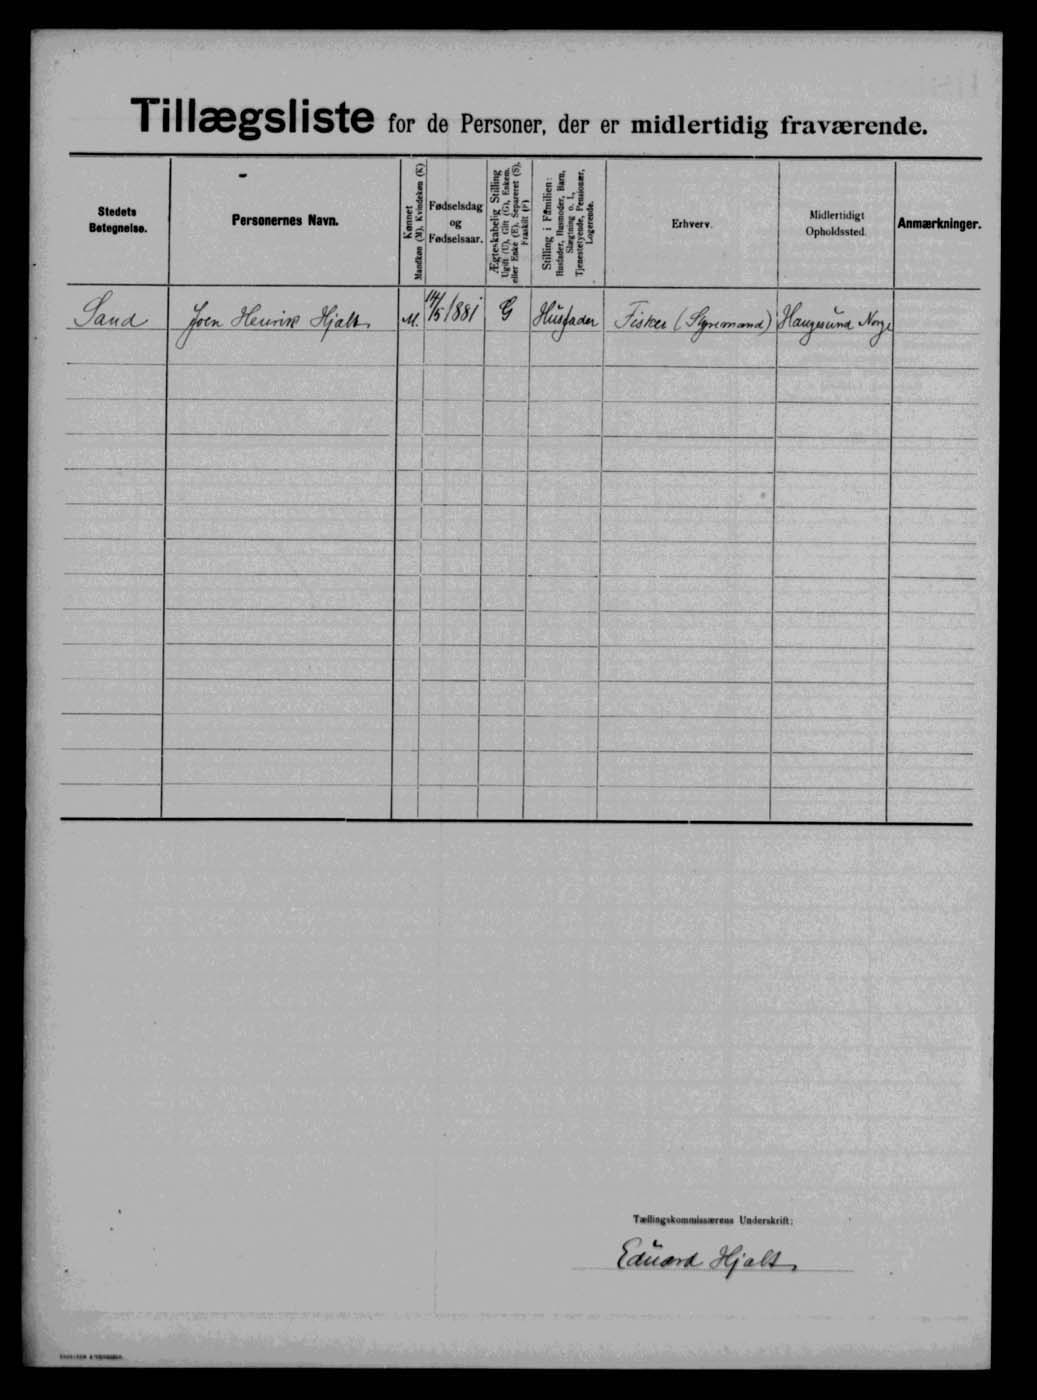 Tillægsliste for de Personer, der er midlertidig fraværende.
Stedets
Betegnelse.
Personernes Navn.
Kønnet
Mandkøn (M), Kvindekøn (K)
Fødselsdag
og
Fødselsaar.
Ægteskabelig Stilling
Ugift (U), Gift (G), Enkem.
eller Enke (E), Separeret (S),
Fraskilt (F)
Stilling i Familien:
Husfader, Husmoder, Barn,
Slægtning o. l.,
Tjenestetyende, Pensionær,
Logerende.
Erhverv.
Midlertidigt
Opholdssted.
Anmærkninger.
Sand Joen Henrik Hjalt M. 14/5 1881 G Husfader Fisker (Styremand) Haugesund Norge
Tællingskommissærens Underskrift:
Eduard Hjalt.